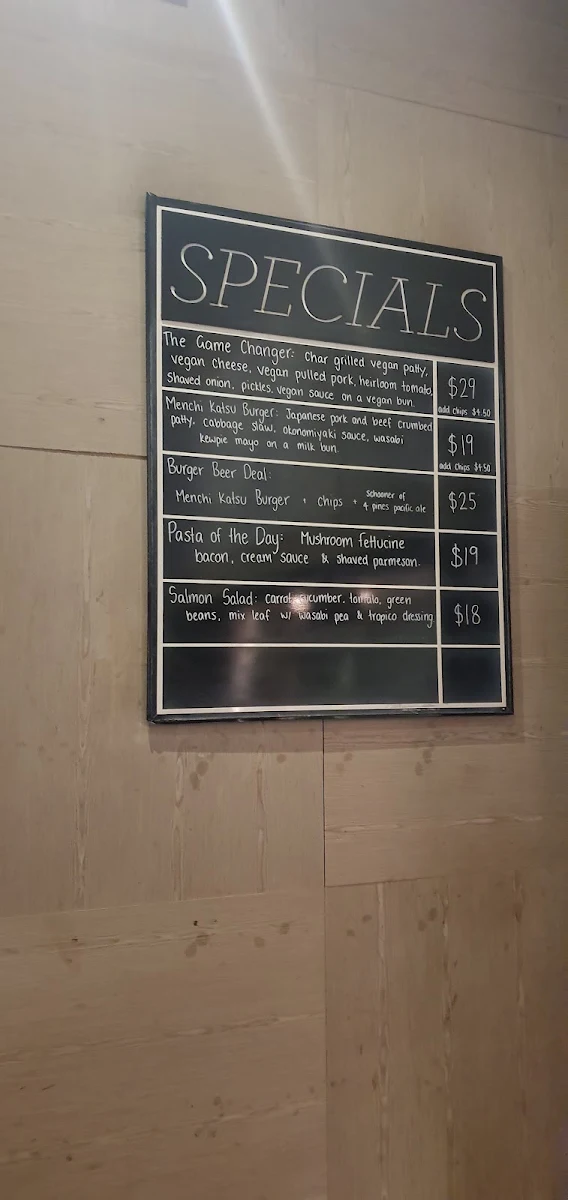 SPECIALS
The Game Changer: Char grilled vegan patty,
vegan cheese, vegan pulled pork, heirloom tomato,
Shaved onion, pickles, vegan sauce on a vegan bun.
$29
add chips $4.50
Menchi Katsu Burger: Japanese pork and beef crumbed
patty, cabbage slaw, okonomiyaki sauce, wasabi
kewpie mayo on a milk bun.
$19
add chips $4.50
Burger Beer Deal:
Menchi Katsu Burger + chips + Schooner of
4 pines pacific ale
$25
Pasta of the Day: Mushroom fettucine
bacon, cream sauce & shaved parmesan.
$19
Salmon Salad: carrot, cucumber, tomato, green
beans, mix leaf w/ wasabi pea & tropico dressing
$18